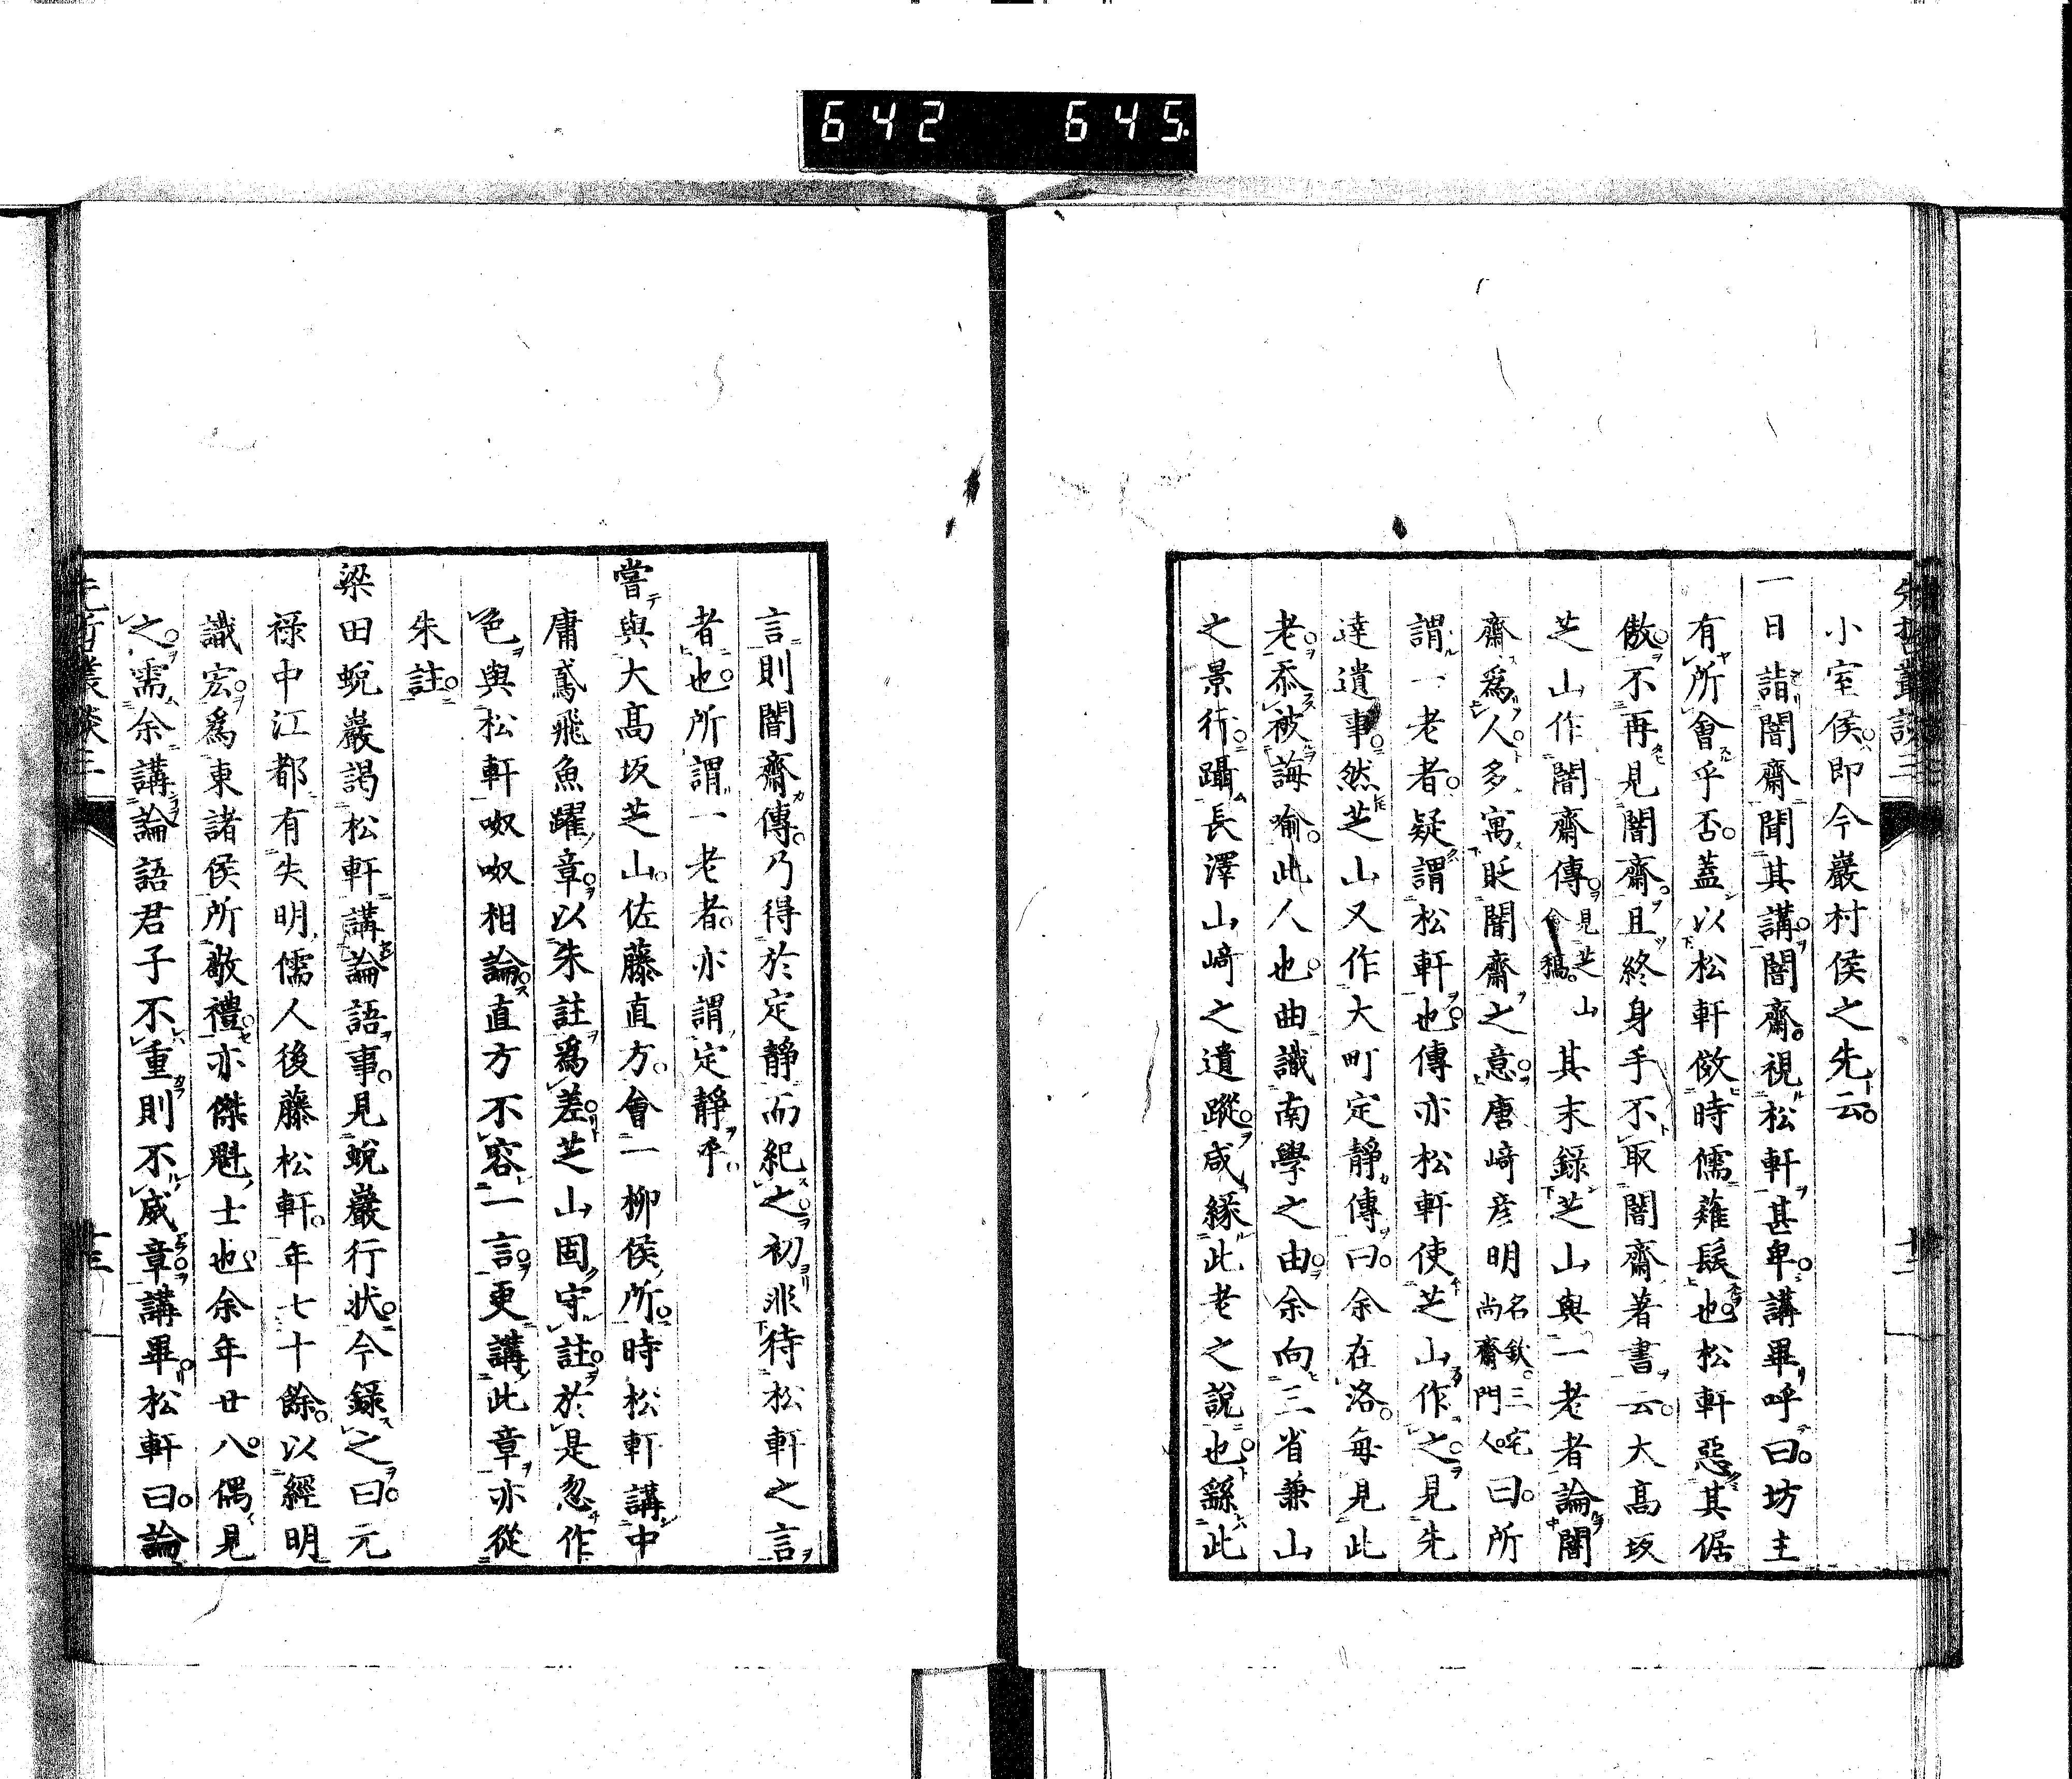 642 645
先哲叢談三
小室侯即今巖村侯之先云
一日詣闇齋聞其講闇齋視松軒甚卑講畢呼曰坊主
有所會乎否蓋以松軒傚時儒薙髮也松軒惡其倨
傲不再見闇齋且終身手不取闇齋著書云大高坂
芝山作闇齋傳見芝山會稿其末錄芝山與一老者論闇
齋爲人多寓貶闇齋之意唐﨑彦明名欽三宅尚齋門人曰所
謂一老者疑謂松軒也傳亦松軒使芝山作之見先
達遺事然芝山又作大町定靜傳曰余在洛每見此
老忝被誨喻此人也曲識南學之由余向三省兼山
之景行躡長澤山﨑之遺蹤咸緣此老之說也繇此
言則闇齋傳乃得於定靜而紀之初非待松軒之言
者也所謂一老者亦謂定靜乎
嘗與大高坂芝山佐藤直方會一柳侯所時松軒講中
庸鳶飛魚躍章以朱註爲差芝山固守註於是忽作
色與松軒呶呶相論直方不容一言更講此章亦從
朱註
梁田蛻巖謁松軒講論語事見蛻巖行狀今錄之曰元
祿中江都有失明儒人後藤松軒年七十餘以經明
識宏爲東諸侯所敬禮亦傑魁士也余年廿八偶見
之需余講論語君子不重則不威章講畢松軒曰論
先哲叢談三